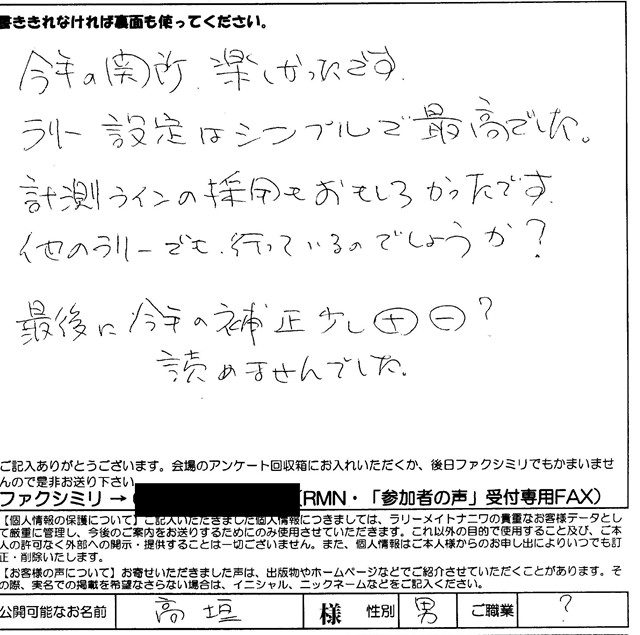 書ききれなければ裏面も使ってください。
今年の関所、楽しかったです。
ラリー設定はシンプルで最高でした。
計測ラインの採用もおもしろかったです。
他のラリーでも、行っているのでしょうか？
最後に今年の補正少し⊕⊖？
読めませんでした。
ご記入ありがとうございます。会場のアンケート回収箱にお入れいただくか、後日ファクシミリでもかまいませ
んので是非お送り下さい
ファクシミリ→(RMN・「参加者の声」受付専用FAX)
【個人情報の保護について】ご記入いただきました個人情報につきましては、ラリーメイトナニワの貴重なお客様データとし
て厳重に管理し、今後のご案内をお送りするためにのみ使用させていただきます。これ以外の目的で使用すること及び、ご本
人の許可なく外部への開示・提供することは一切ございません。また、個人情報はご本人様からのお申し出によりいつでも訂
正・削除いたします。
【お客様の声について】お寄せいただきました声は、出版物やホームページなどでご紹介させていただくことがあります。そ
の際、実名での掲載を希望なさらない場合は、イニシャル、ニックネームなどをご記入ください。
公開可能なお名前 高垣 様 性別 男 ご職業 ?